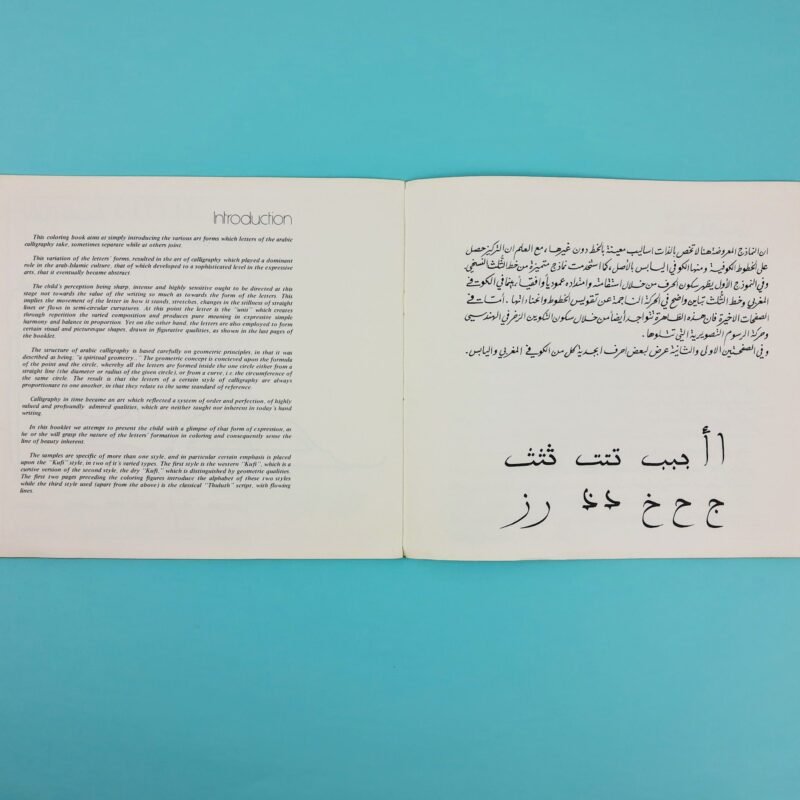 Introduction
This coloring book aims at simply introducing the various art forms which letters of the arabic
calligraphy take, sometimes separate while at others joint.
This variation of the letters' forms, resulted in the art of calligraphy which played a dominant
role in the arab-Islamic culture, that of which developed to a sophisticated level in the expressive
arts, that it eventually became abstract.
The child's perception being sharp, intense and highly sensitive ought to be directed at this
stage not towards the value of the writing so much as towards the form of the letters. This
implies the movement of the letter as how it stands, stretches, changes in the stillness of straight
lines or flows in semi-circular curvatures. At this point the letter is the "unit" which creates
through repetition the varied composition and produces pure meaning in expressive simple
harmony and balance in proportion. Yet on the other hand, the letters are also employed to form
certain visual and picturesque shapes, drawn in figurative qualities, as shown in the last pages of
the booklet.
The structure of arabic calligraphy is based carefully on geometric principles, in that it was
described as being, "a spiritual geometry." The geometric concept is concieved upon the formula
of the point and the circle, whereby all the letters are formed inside the one circle either from a
straight line (the diameter or radius of the given circle), or from a curve, i.e the circumference of
the same circle. The result is that the letters of a certain style of calligraphy are always
proportionate to one another, in that they relate to the same standard of reference.
Calligraphy in time became an art which reflected a system of order and perfection, of highly
valued and profoundly admired qualities, which are neither taught nor inherent in today's hand
writing.
In this booklet we attempt to present the child with a glimpse of that form of expression, as
he or she will grasp the nature of the letters' formation in coloring and consequently sense the
line of beauty inherent.
The samples are specific of more than one style, and in particular certain emphasis is placed
upon the "Kufi" style, in two of it's varied types. The first style is the western "Kufi", which is a
cursive version of the second style, the dry "Kufi," which is distinguished by geometric qualities.
The first two pages preceding the coloring figures introduce the alphabet of these two styles
while the third style used (apart from the above) is the classical "Thuluth" script, with flowing
lines.
ان النماذج المعروضة هنا لا تختص بالذات اساليب معينة بالخط دون غيرها، مع العلم ان التركيز حصل
على الخطوط الكوفية ومنها الكوفي اليابس بالأصل، كما استخدمت نماذج متميزة من خط الثلث النسخي.
وفي النموذج الأول يظهر سكون الحرف من خلال استقامته وامتداده عمودياً وأفقياً، بينما في الكوفي
المغربي وخط الثلث تباين واضح في الحركة الناجمة عن تقويس الخطوط وانحناءاتها. أما في
الصفحات الاخيرة فان هذه الظاهرة تتواجد أيضاً من خلال سكون التكوين الزخرفي الهندسي
وحركة الرسوم التصويرية التي تتلوها.
وفي الصفحتين الاولى والثانية عرض لبعض احرف ابجدية كل من الكوفي المغربي واليابس.
ا أ ببب تتت ثثث
ج ح خ د ذ ر ز